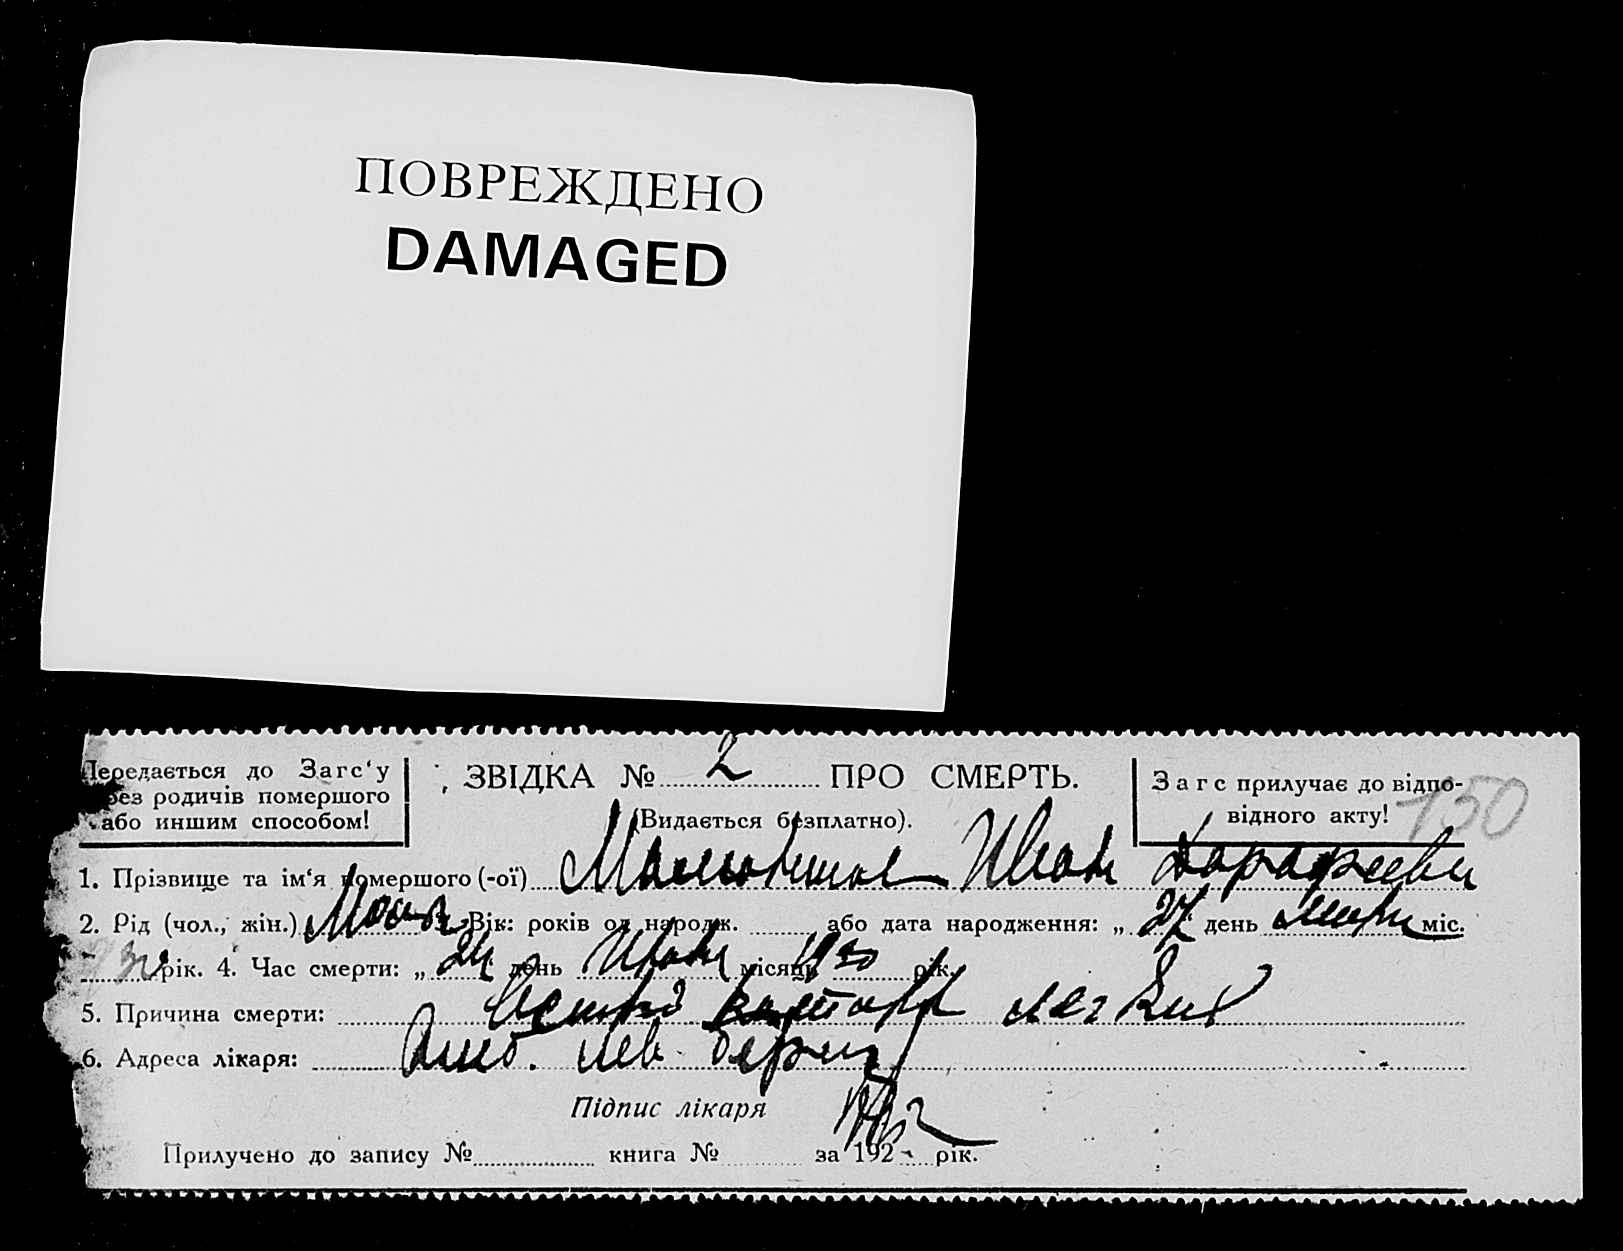 ПОВРЕЖДЕНО
DAMAGED
Передається до Загс‘у
через родичів помершого
або иншим способом!
ЗВІДКА № 2 ПРО СМЕРТЬ.
(Видається безплатно).
Загс прилучає до відпо-
відного акту!
150
1. Прізвище та ім‘я помершого (-ої) Иван
2. Рід (чол., жін.) Вік: років од народж. або дата народження: „ 27 день міс.
рік. 4. Час смерти: „ 24 день місяць 1930 рік.
5. Причина смерти: легких
6. Адреса лікаря: Амб.
Підпис лікаря
Прилучено до запису № книга № за 192 рік.